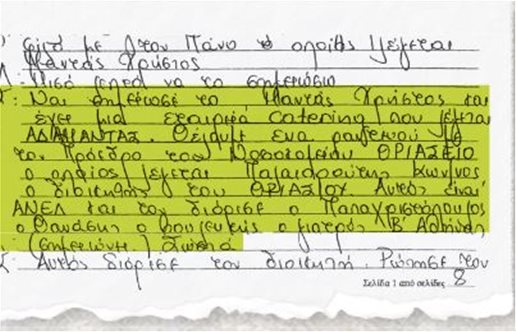 αυτό με τον Πάνο ο οποίος λέγεται
Μαντάς Χρήστος
Λ: Μισό λεπτό να το σημειώσω
Σ: Ναι σημείωσε το Μαντάς Χρήστος και
έχει μια εταιρεία catering που λέγεται
ΑΔΑΜΑΝΤΑΣ. Θέλουμε ένα ραντεβού με
τον Πρόεδρο του Νοσοκομείου ΘΡΙΑΣΕΙΟ
ο οποίος λέγεται
ο διοικητής του ΘΡΙΑΣΙΟΥ Αυτός είναι
ΑΝΕΛ και τον διόρισε ο Παπαχριστόπουλος
ο Θανάσης ο βουλευτής ο γιατρός Β' Αθήνας
(σημειώνει) Σωστά
Σ: Αυτός διόρισε τον διοικητή. Ρώτησε τον
Σελίδα 1 από σελίδες 8